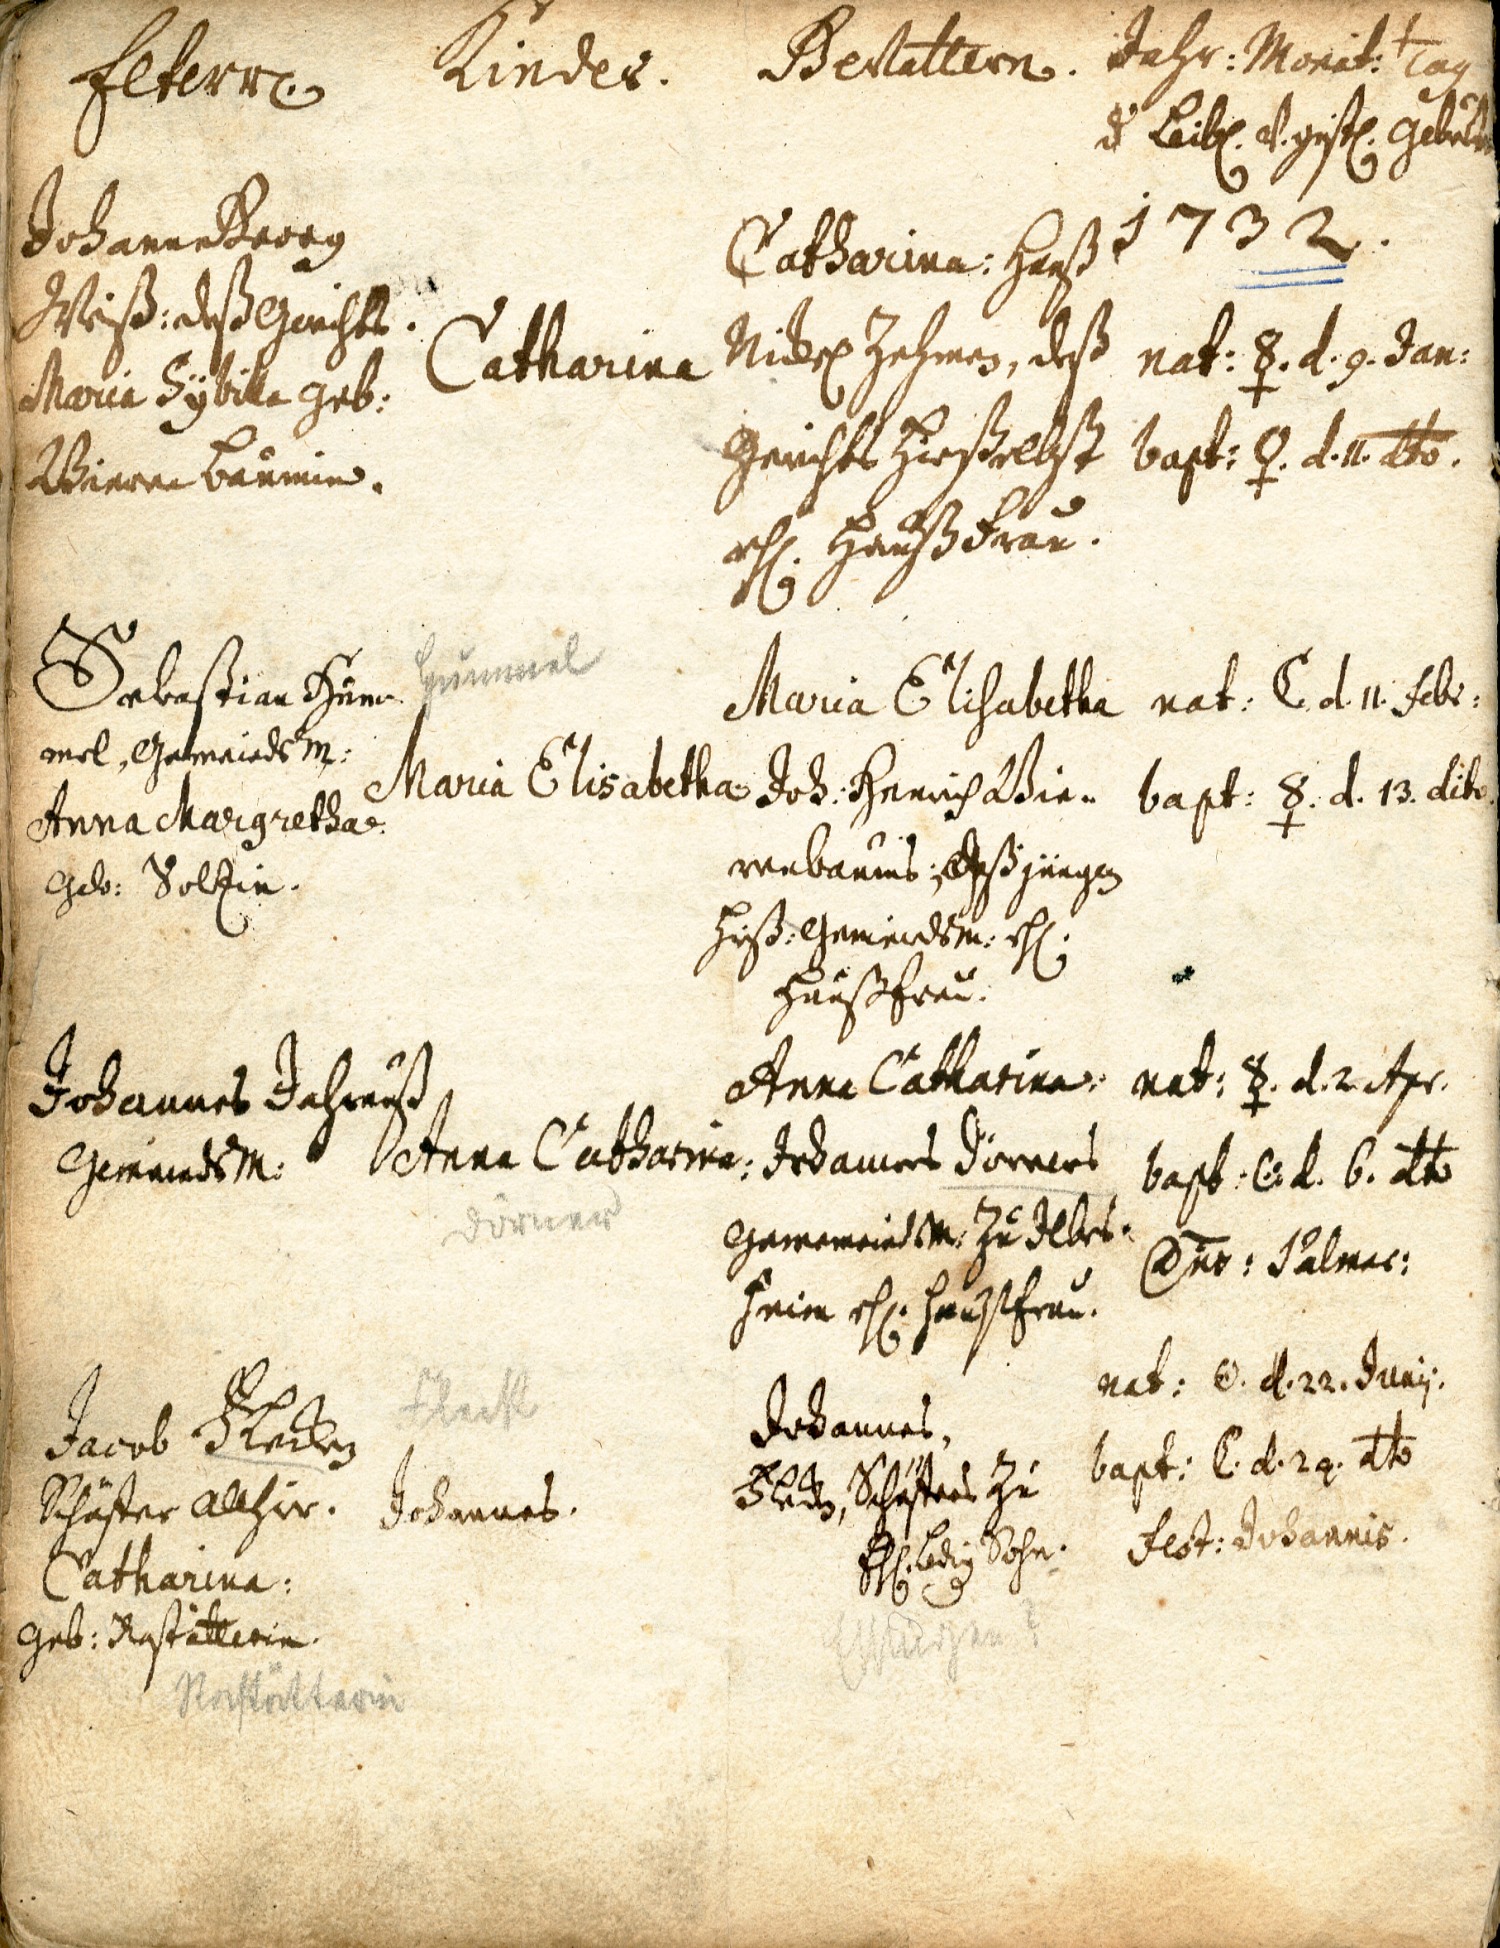 Eltern.
Kinder.
Gevattern.
Jahr: Monat: Tag
d. Leibl. u. geistl. Gebuhrt
1732.
Johann Georg
Weiß: deß Gerichts.
Maria Sybilla geb:
Bierenbäumin.
Catharina
Catharina: Hanß
Nickel Zehmen, deß
Gerichts hießelbst
ehl. Haußfrau.
nat: ☿. d. 9. Jan:
bapt: ♀. d. 11. dto.
Sebastian Hüm-
mel, Gemeinds M:
Anna Margretha
geb: Voltzin.
Hümmel
Maria Elisabetha
Maria Elisabetha
Joh: Henrich Bie-
renbaums, deß jungen
hieß: Gemeinds M: ehl.
Haußfrau.
nat: ☾. d. 11. Febr:
bapt: ☿. d. 13. dito.
Johannes Jahrauß
Gemeinds M:
Anna Catharina:
Dörner
Anna Catharina:
Johannes Dörners
Gemeinds M: zu Ilbes-
heim ehl. Haußfrau.
nat: ☿. d. 2. Apr.
bapt: ☉. d. 6. dto
Dno: Palmar:
Jacob Flecken
Schäffer allhier.
Catharina:
geb: Rastätterin.
Rastätterin
Fleck
Johannes.
Johannes,
Flecken, Schäffers zu
ehl. ledig Sohn.
nat: ☉. d. 22. Junij.
bapt: d. 24. dto
Fest: Johannis.